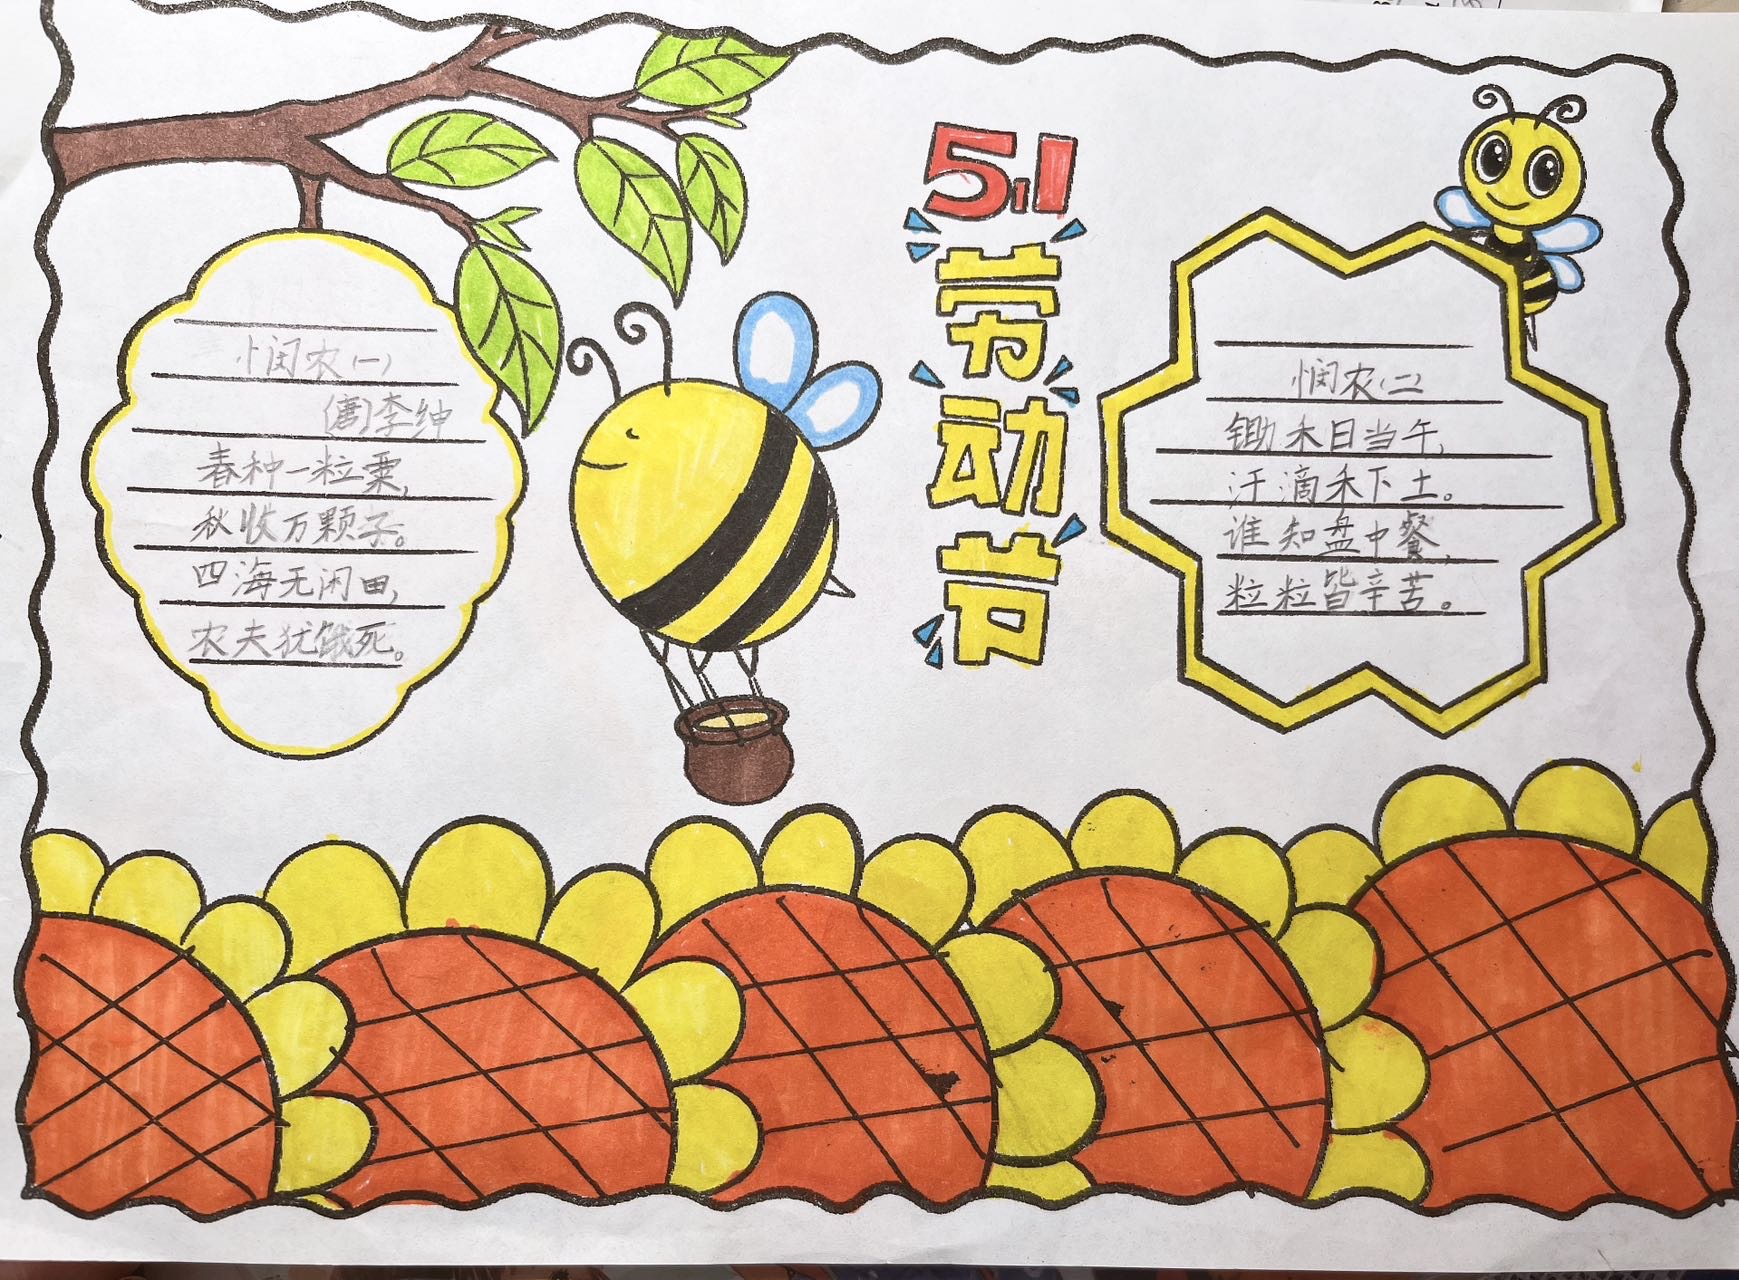 悯农(一)
(唐)李绅
春种一粒粟,
秋收万颗子。
四海无闲田,
农夫犹饿死。
5.1
劳动节
悯农(二)
锄禾日当午,
汗滴禾下土。
谁知盘中餐,
粒粒皆辛苦。